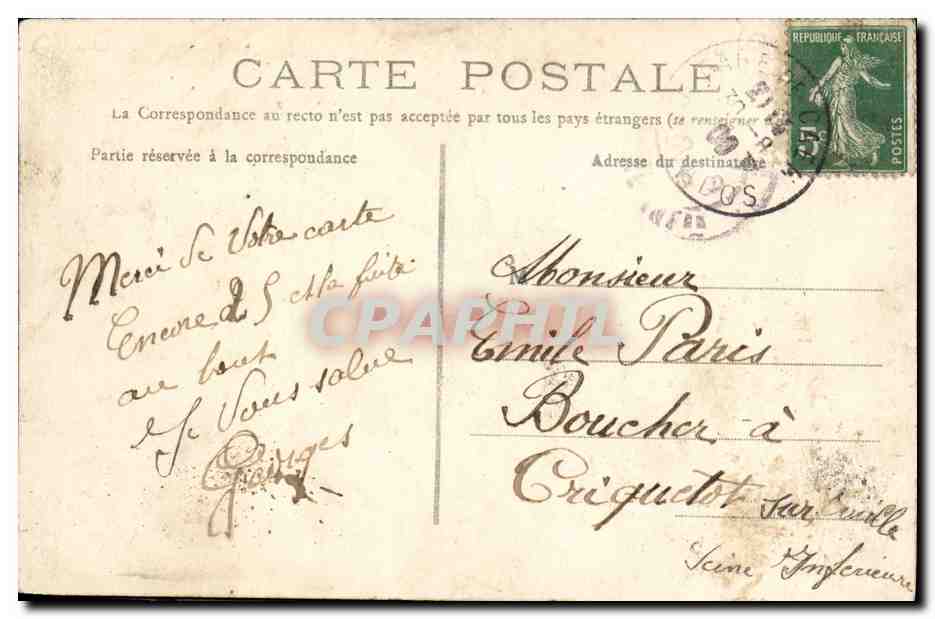 CARTE POSTALE
La Correspondance au recto n'est pas acceptée par tous les pays étrangers (se renseigner à
Partie réservée à la correspondance
Adresse du destinataire
REPUBLIQUE FRANÇAISE
5c
POSTES
Merci de Votre carte
Encore 25 et la fuite
au bout
Je Vous salue
Georges
CPAPHIL
Monsieur
Emile Paris
Boucher à
Criquetot sur
Seine Inferieure